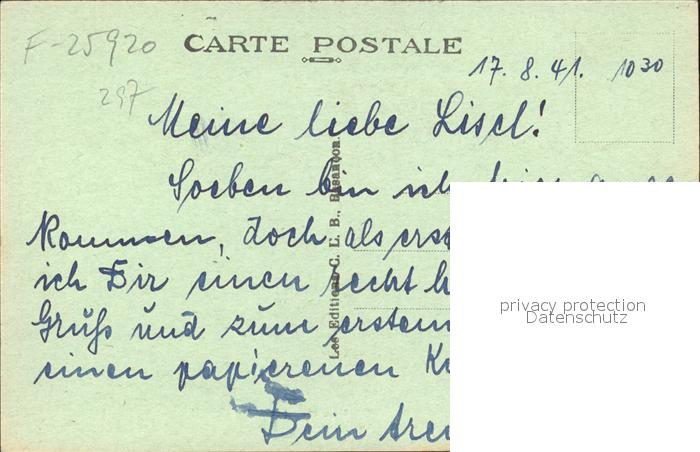 F-25920
CARTE POSTALE
17. 8. 41. 10 30
297
Meine liebe Liesel!
Soeben bin ich hier
kommen, doch als
ich Dir einen recht
Gruß und zum ersten
einen papierenen
Dein
Les Editions C. L. B., Besançon.
privacy protection
Datenschutz